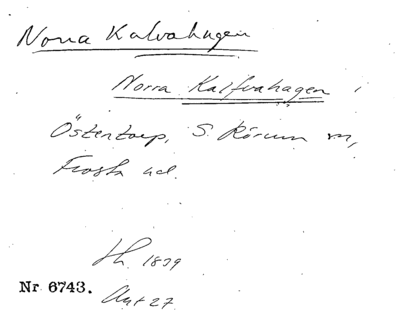 Norra Kalvahagen
Norra Kalfvahagen i
Östentorp, S. Rörum sn,
Frosta hd.
1839
Nr 6743. Akt 27